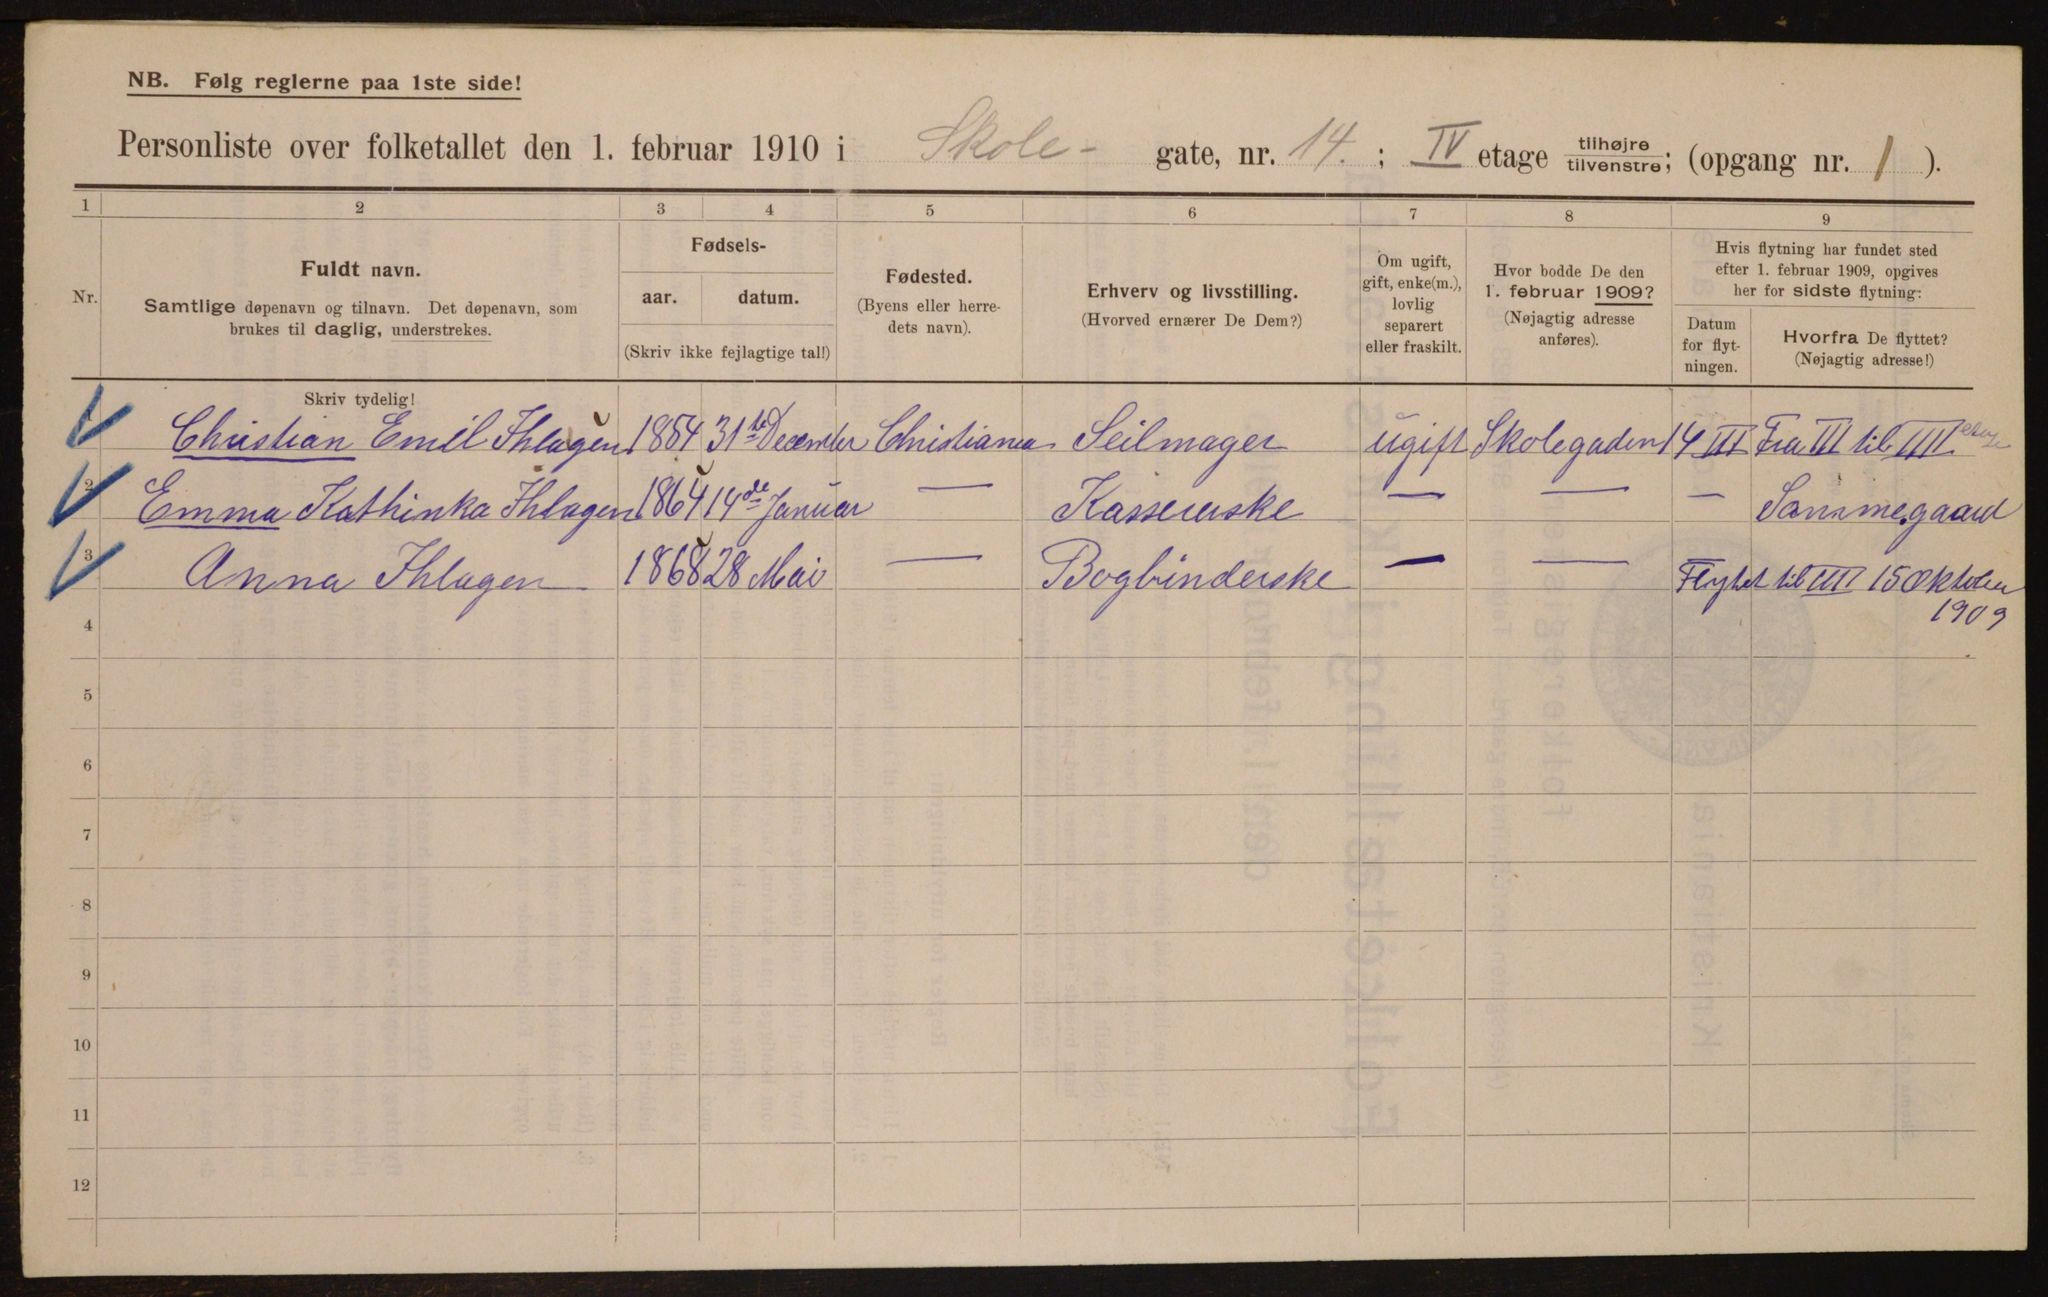 NB. Følg reglerne paa 1ste side!
Personliste over folketallet den 1. februar 1910 i Skole- gate, nr. 14. ; IV etage tilhøjre tilvenstre; (opgang nr. 1 ).
1 2 3 4 5 6 7 8 9
Nr.
Fuldt navn.
Samtlige døpenavn og tilnavn. Det døpenavn, som
brukes til daglig, understrekes.
Fødsels-
aar. datum.
(Skriv ikke fejlagtige tal!)
Fødested.
(Byens eller herre-
dets navn).
Erhverv og livsstilling.
(Hvorved ernærer De Dem?)
Om ugift,
gift, enke(m.),
lovlig
separert
eller fraskilt.
Hvor bodde De den
1. februar 1909?
(Nøjagtig adresse
anføres).
Hvis flytning har fundet sted
efter 1. februar 1909, opgives
her for sidste flytning:
Datum
for flyt-
ningen.
Hvorfra De flyttet?
(Nøjagtig adresse!)
Skriv tydelig!
Christian Emil Ihlagen 1854 31te December Christiania Seilmager ugift Skolegaden 14 III Fra III til IIII etage
2 Emma Kathinka Ihlagen 1864 14de Januar — Kassererske — — — Sammegaard
3 Anna Ihlagen 1868 28 Mai — Bogbinderske — — Flyttet til IIII 15 Oktober
1909
4
5
6
7
8
9
10
11
12